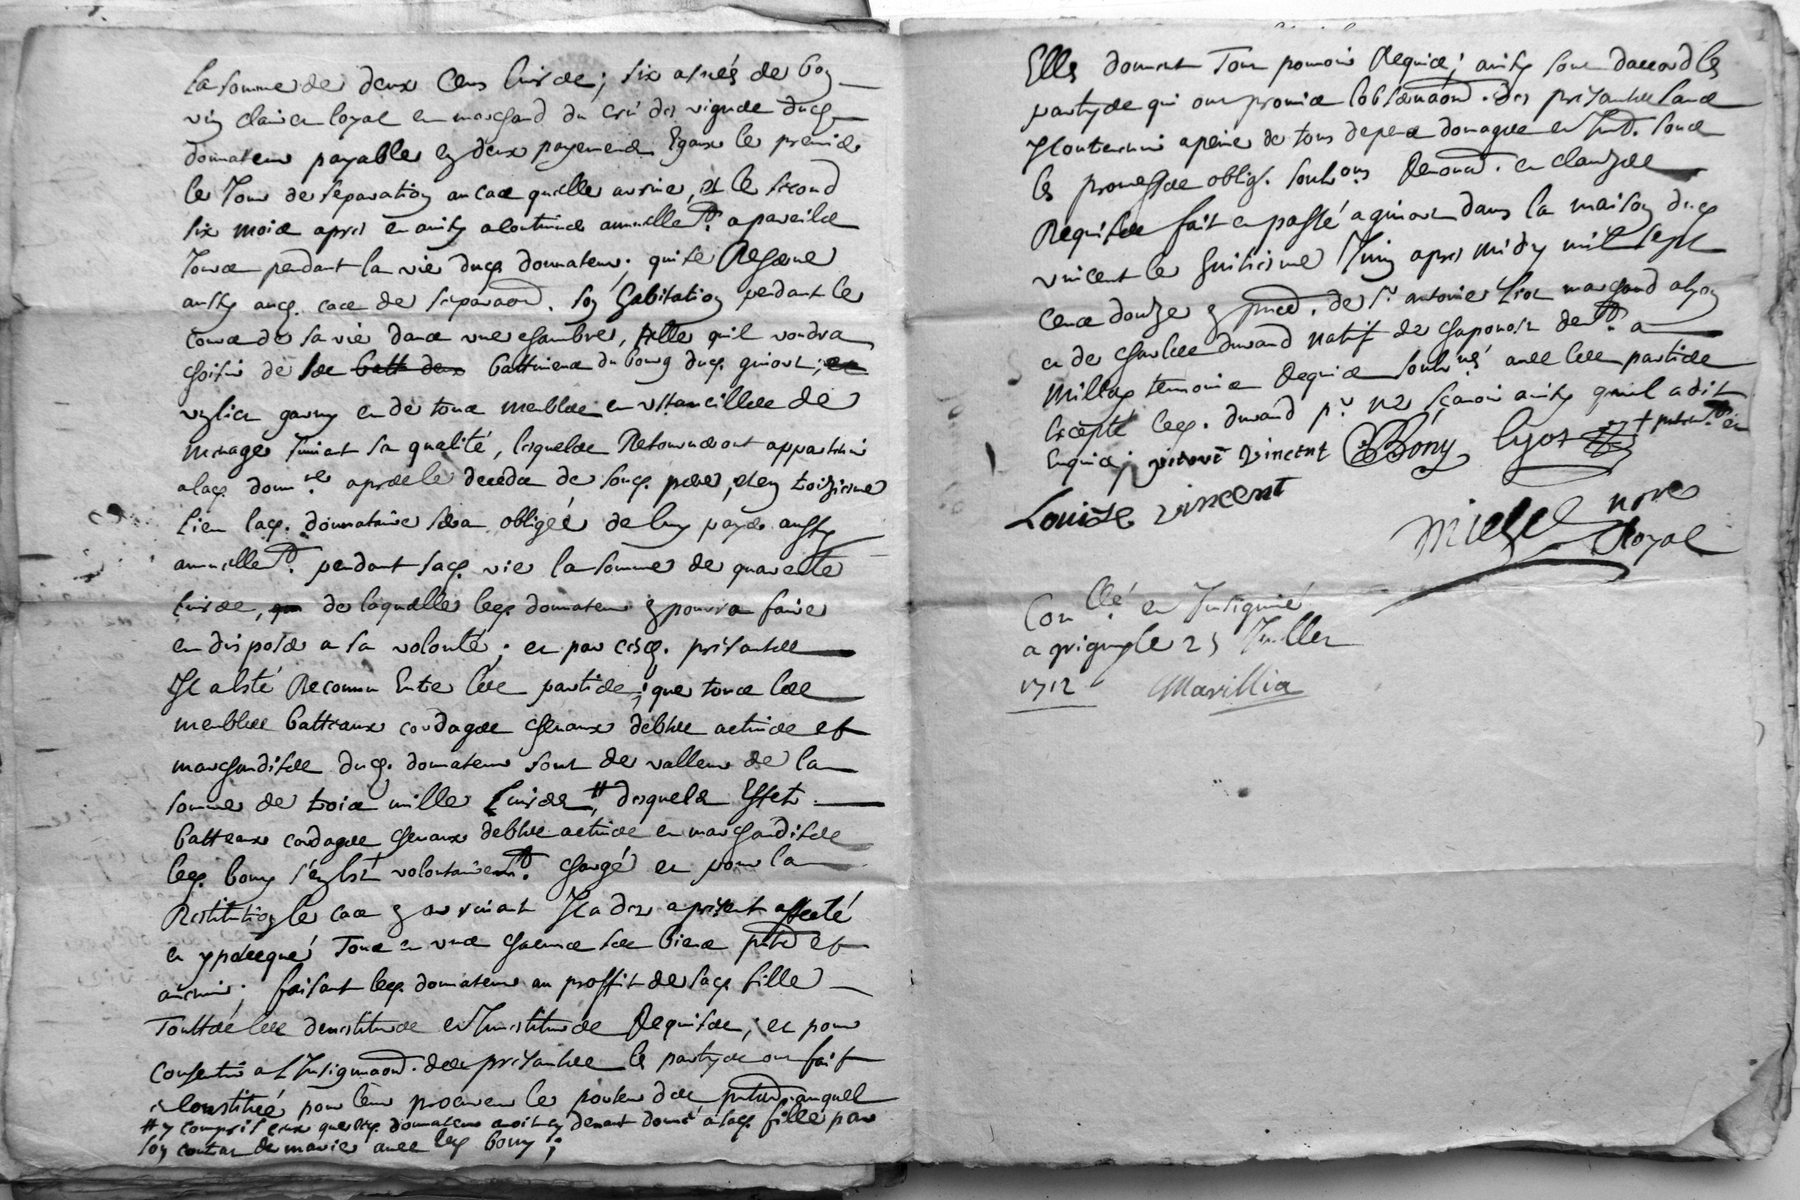 la somme de deux cens livres, six asnés de bon
vin clair et loyal et marchand du crû des vignes dud.
donnateur payables en deux payements Egaux le premier
le Jour de separation au cas quelle arrive, et le second
six mois apres et ainsy a continuer annuellemt. a pareils
Jours pendant la vie dud. donnateur; qui se Reserve
aussy aud. cas de separaon. son habitation pendant le
cours de sa vie dans une chambre, telle qu'il voudra
choisir de ses batt des battiments du bourg dud. givort; et
un lict garny et de tous meubles et ustancilles de
menage suivant sa qualité, lesquels Retourneront appartenir
a lad. donnre. apres le deceds de sond. pere, et en troizieme
lieu lad. donnataire sera obligéé de luy payer aussy
annuellemt. pendant sad. vie la somme de quarente
livres, de laquelle led. donnateur en pourra faire
et disposer a sa volonté; et par cesd. presantes
Il a esté Reconnu Entre les parties, que tous les
meubles batteaux cordages chevaux debtes actives et
marchandises dud. donnateur sont de valleur de la
somme de trois mille livres #, desquels Effets
batteaux cordages chevaux debtes actives et marchandises
led. bony s'en est volontairemt. chargé et pour la
Restitution le cas en arrivant Il a des a present affecté
et ypotecqué Tous et uns chacuns ses biens pnts et
avenir; faisant led. donnateur au proffit de sad. fille
Touttes les devestitures et Investitures Requises; et pour
consentir a l'Insignuaon. des presantes les partyes ont fait
et constitué pour leur procureur le porteur des pntes auquel
# y compris ceux que led. donnateur avoit cy devant donné a lad. fille par
son contrat de mariage avec led. bony;
Elles donnent Tout pouvoir Requis; ainsy sont daccord les
partyes qui ont promis l'observaon. des presantes sans
y contrevenir a peine de tous depens domages et Intts. sous
les promesses oblig. soub.ons Renon. et clauzes
Requises fait et passé a givort dans la maison dud.
vincent le huitieme Juin apres midy mil sept
cens douze en pnce. de Sr. antoine Lyot marchand a lyon
et de charles durand natif de chaponost demt. a
millery temoins Requis soubsnés avec les parties
Excepté led. durand pr. ne scavoir ainsy qu'il a dit
Enquis; pierre vincent Bony Lyot
Louize vincent
Michel nore
Royal
Conllé et Insignué
a grigny le 25 Juillet
1712 Marillia